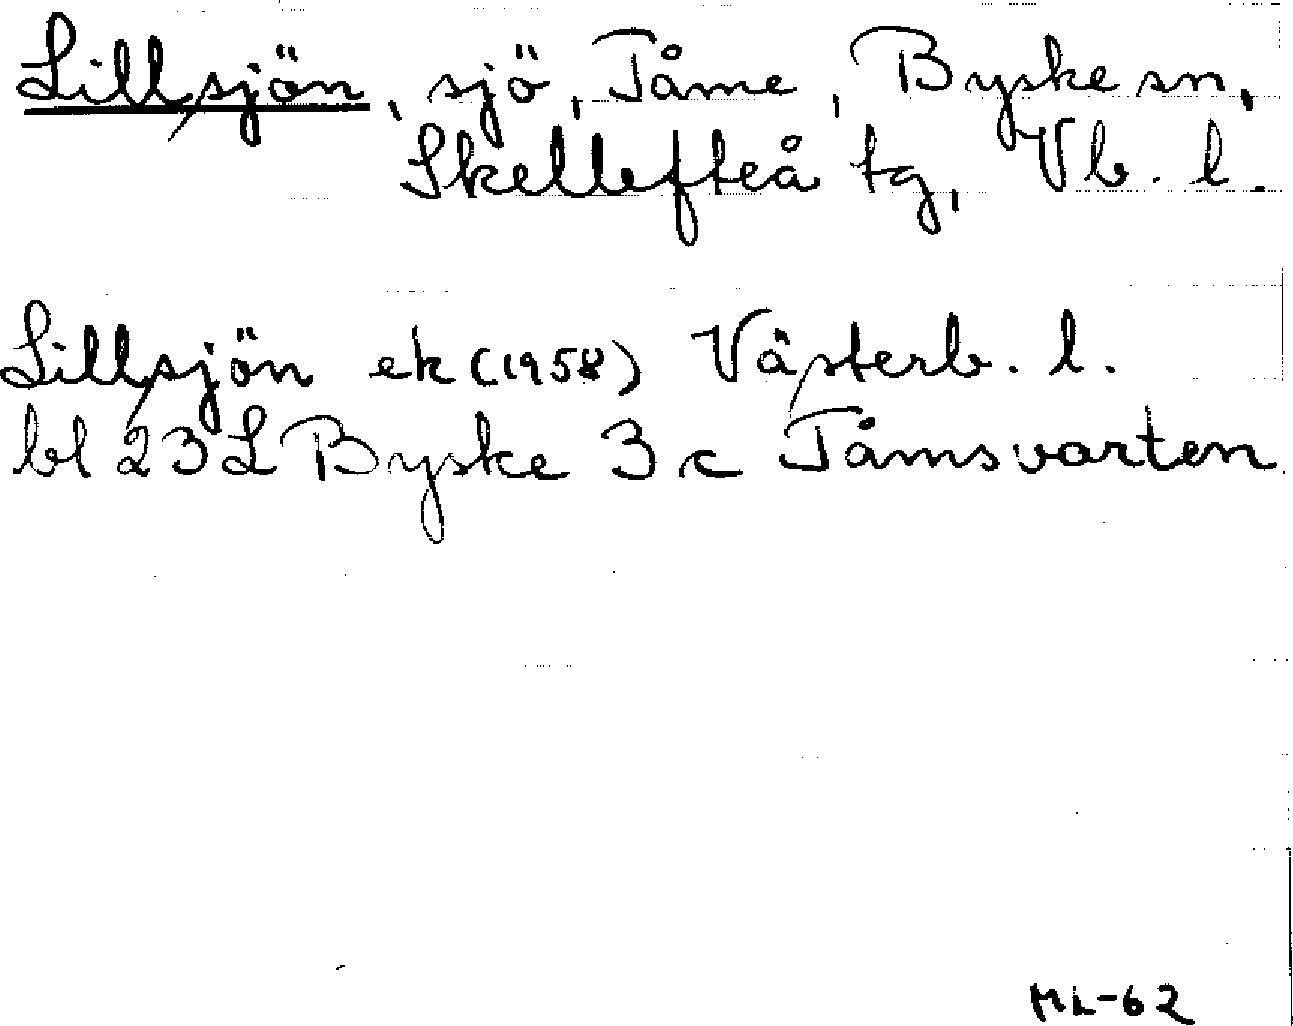 Lillsjön, sjö, Tåme, Byske sn,
Skellefteå tg, Vb. l.
Lillsjön ek (1958) Västerb. l.
bl 23 L Byske 3 c Tåmsvarten
ML-62